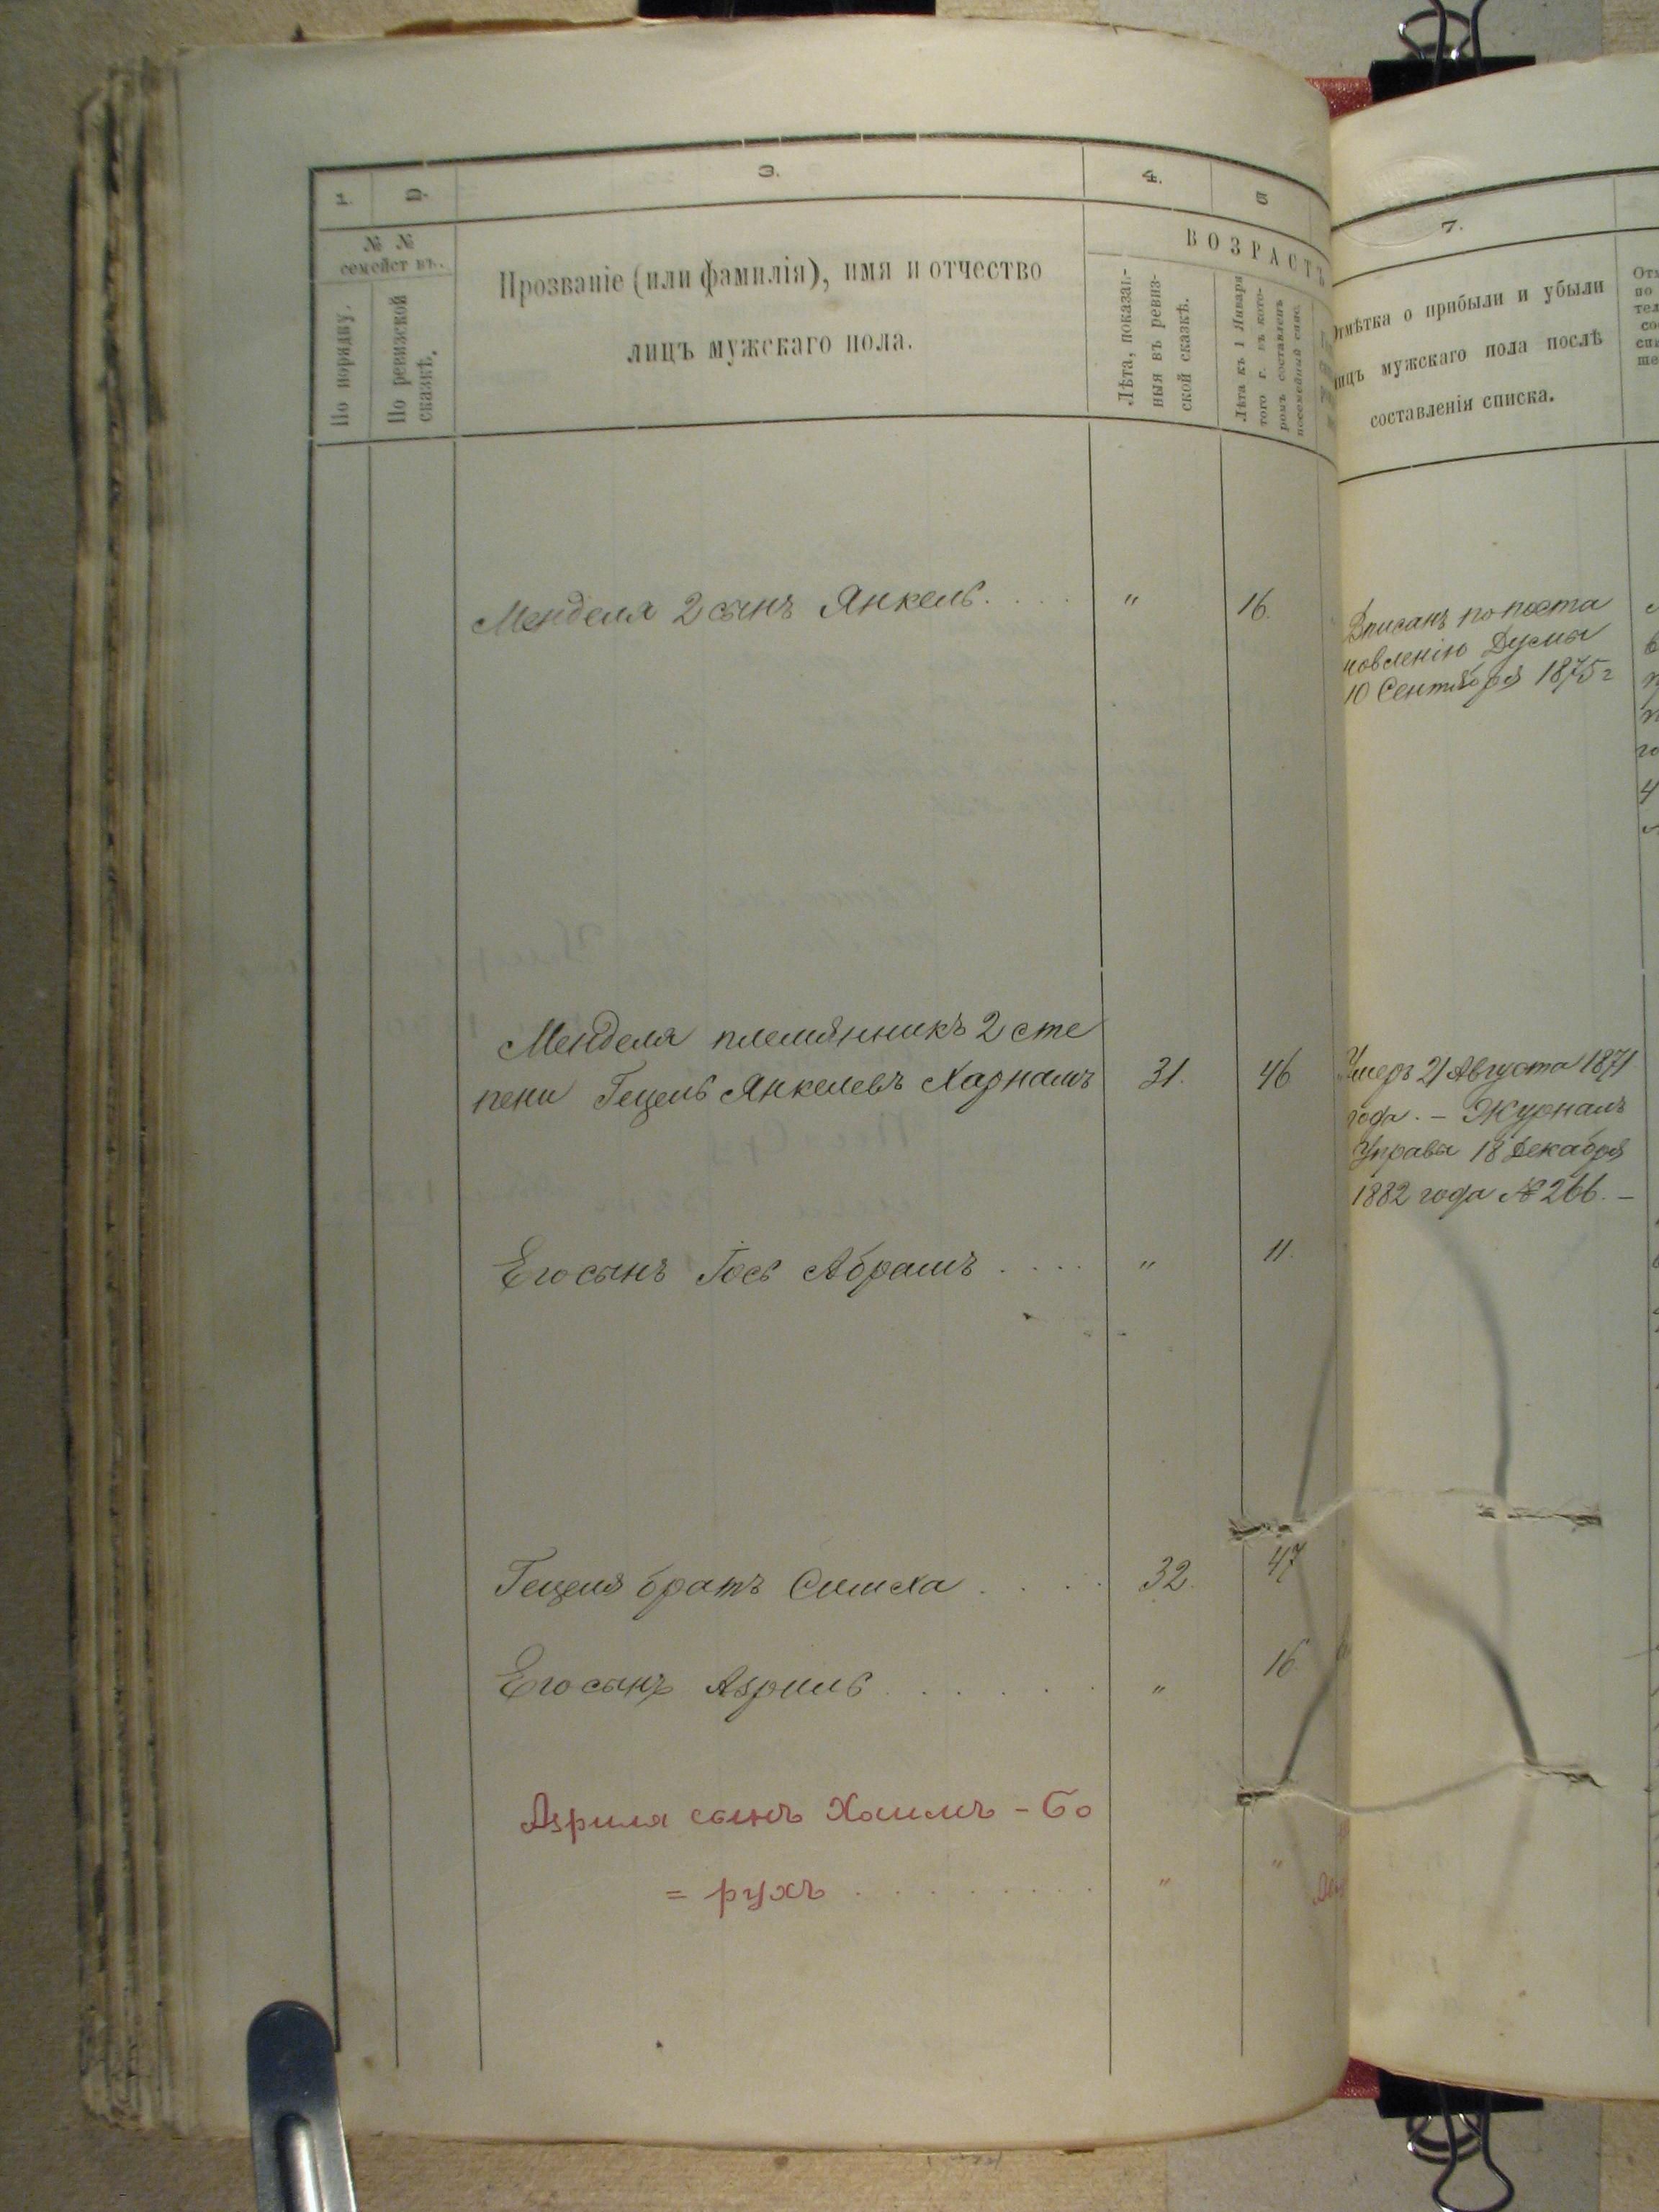 1.
2.
3.
4.
5
№ №
семействъ.
По порядку.
По ревизской
сказкѣ.
Прозваніе (или фамилія), имя и отчество
лицъ мужскаго пола.
ВОЗРАСТЪ
Лѣта, показан-
ныя въ ревиз-
ской сказкѣ.
Лѣта къ 1 Января
того г. въ кото-
ромъ составленъ
посемейный спис.
Менделя 2 сынъ Янкель. . . . " 16.
Менделя племянникъ 2 сте
пени Гецель Янкелевъ Харнамъ 31. 46
Его сынъ Іось Абрамъ . . . . " 11.
Гецеля братъ Симха . . . . 32. 47
Его сынъ Азриль . . . . . . " 16
Азриля сынъ Хаимъ - Бо
= рухъ . . . . . . . . . " "
7.
Отмѣтка о прибыли и убыли
лицъ мужскаго пола послѣ
составленія списка.
Вписанъ по поста
новленію Думы
10 Сентября 1875 г
Умеръ 21 Августа 1871
года. — Журналъ
Управы 18 Декабря
1882 года № 266. —